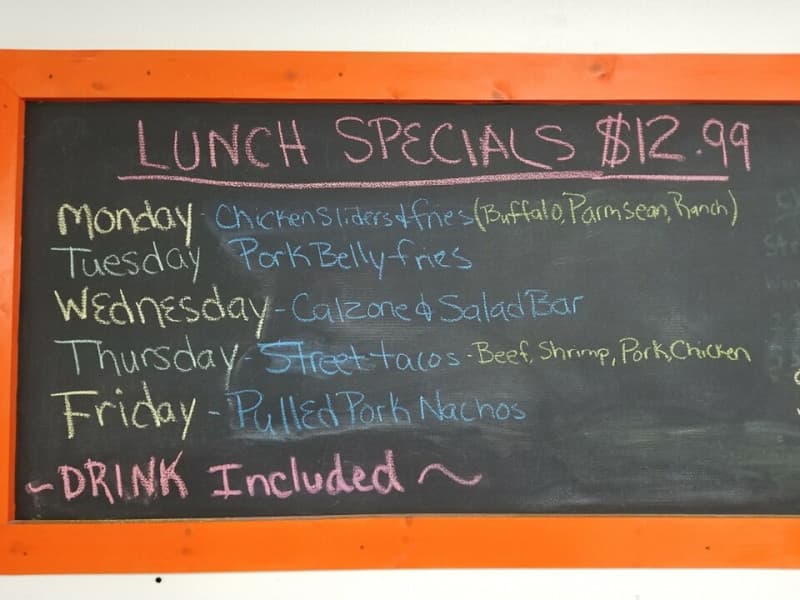 LUNCH SPECIALS $12.99
Monday - Chicken Sliders & fries (Buffalo, Parmsean, Ranch)
Tuesday Pork Belly fries
Wednesday - Calzone & Salad Bar
Thursday Street tacos - Beef, Shrimp, Pork, Chicken
Friday - Pulled Pork Nachos
~ DRINK Included ~